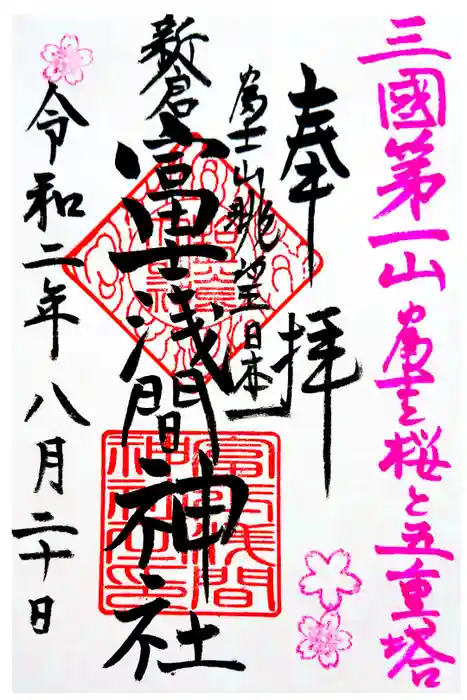 三國第一山富士と桜と五重塔
奉拝
富士山眺望日本一
新倉
富士浅間神社
令和二年八月二十日
富士浅間
神社之印